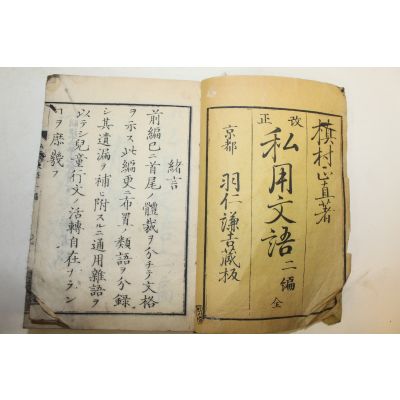 槙村正直著
改正
私用文語 二編 全
京都 羽仁謙吉蔵板
緒言
前編已ニ首尾ノ體裁ヲ分チテ文格
ヲ示ス此編更ニ布置ノ類語ヲ分録
シ其遺漏ヲ補ヒ附スルニ通用雜語ヲ
以テシ兒童行文ノ活轉自在ヲラン
ヿヲ庶幾ス